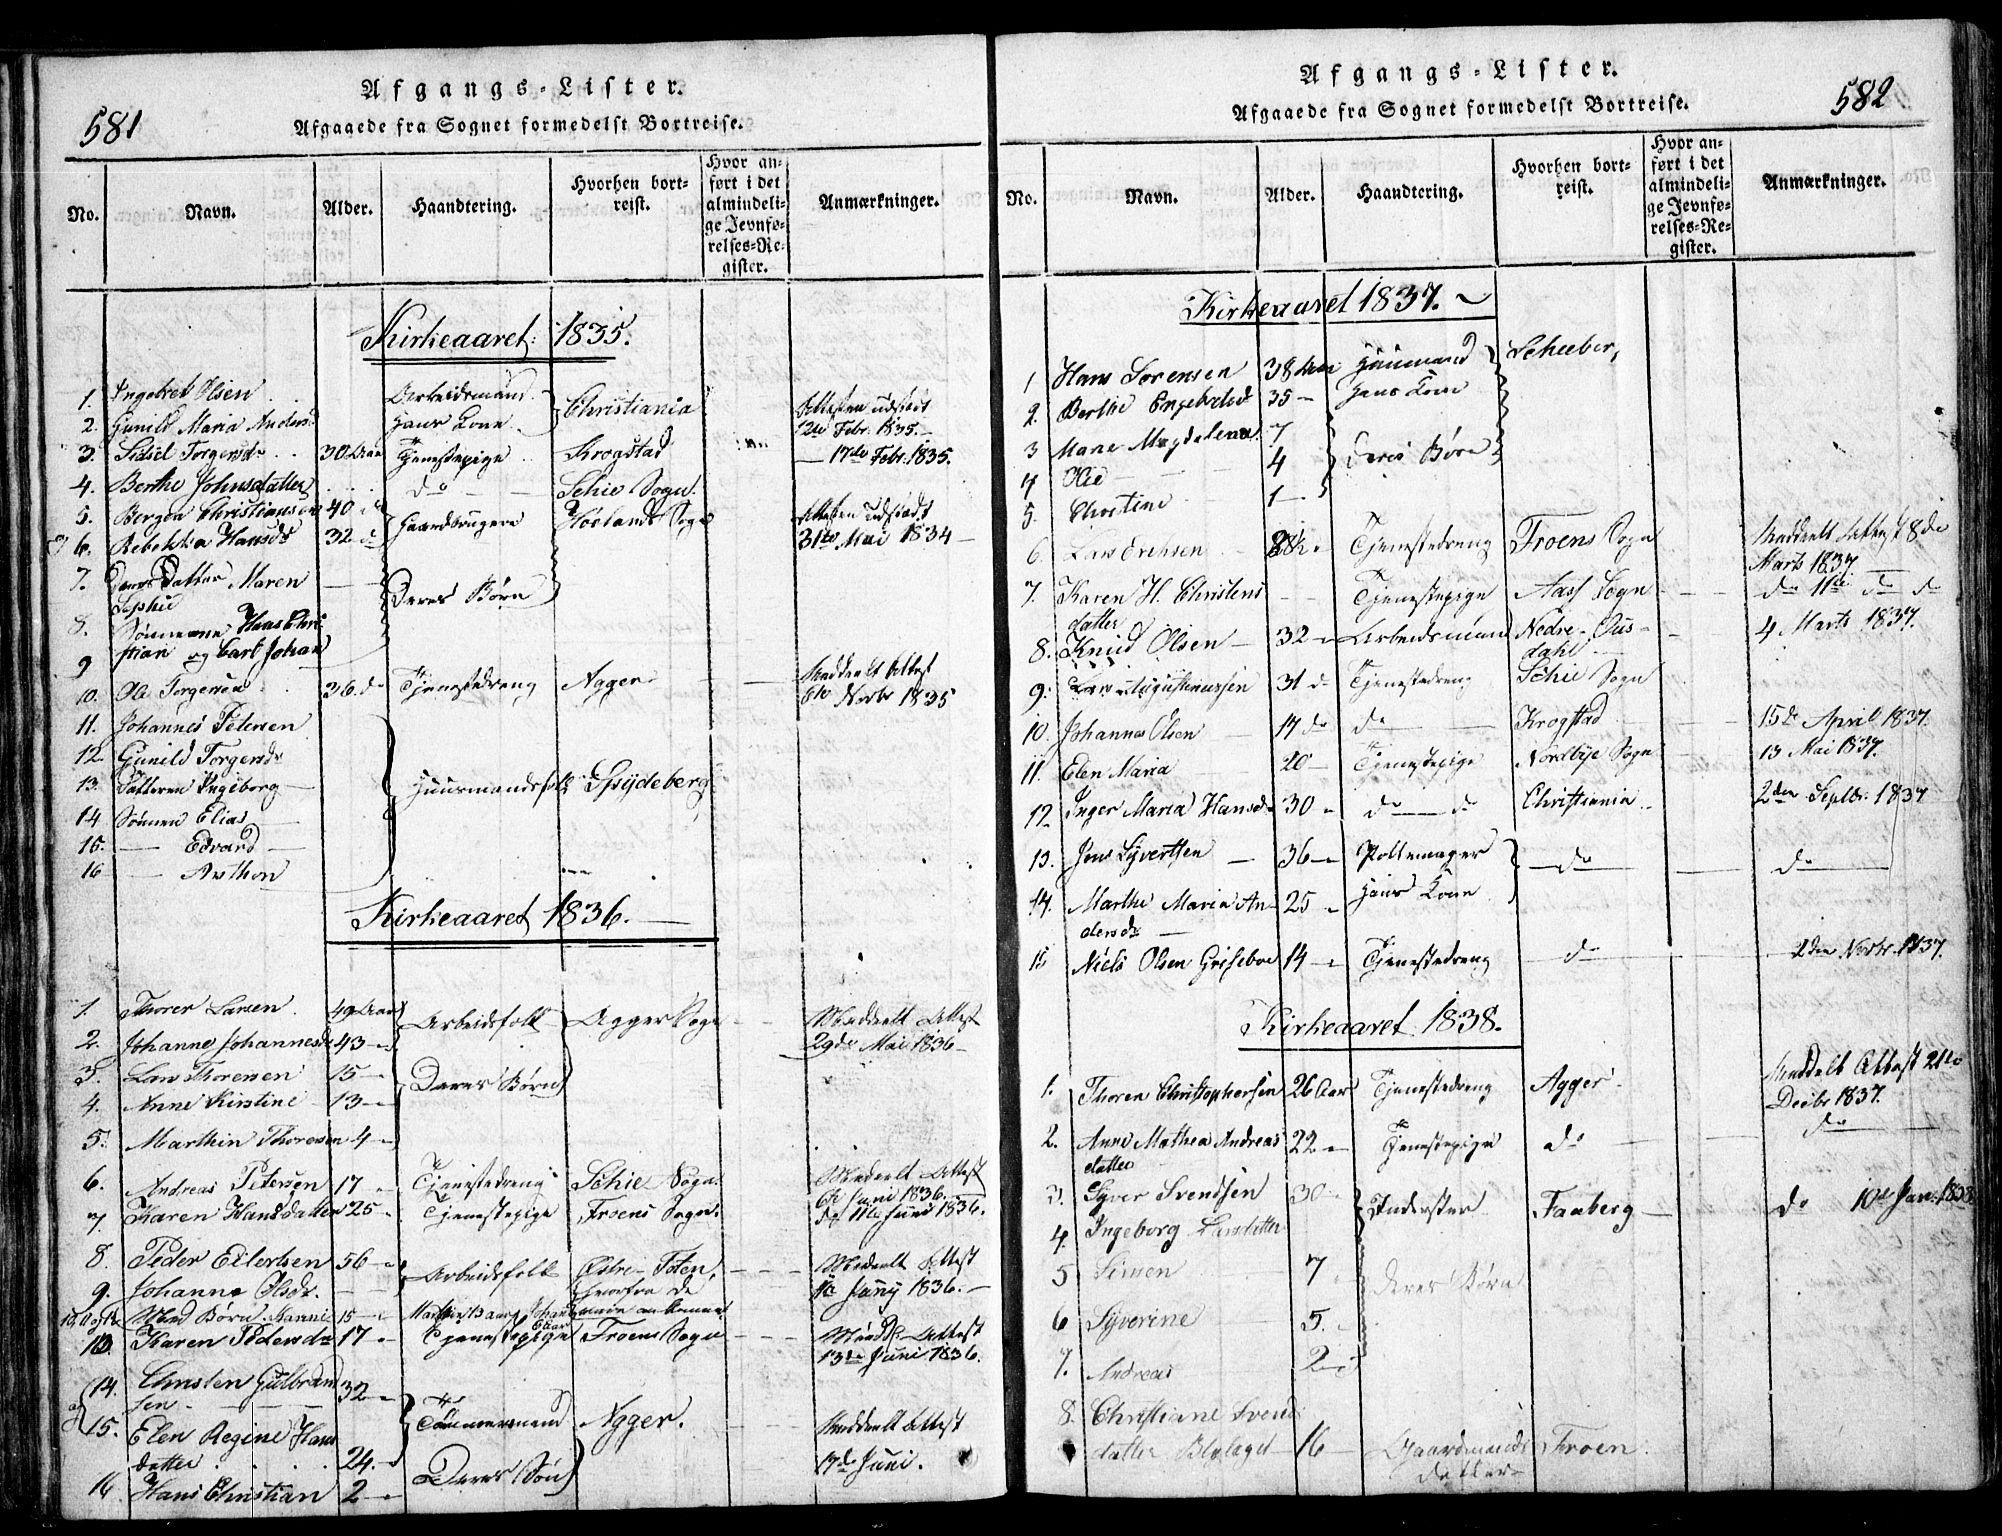 581
Afgangs-Lister.
Afgaaede fra Sognet formedelst Bortreise.
No. Navn. Alder. Haandtering. Hvorhen bortreist. Hvor anført i det almindelige Jevnførelses-Register. Anmærkninger.
Kirkeaaret 1835.
1. Ingebret Olsen Arbeidsmand Christiania Attesten udstædt
2. Gunild Maria Anders. Hans Kone 12te Febr. 1835.
3. Sidsel Torgersdr 30 Aar Tjenestepige Krogstad 17de Febr. 1835.
4. Berthe Johnsdatter do Schie Sogn.
5. Berger Christiansen 40 d Gaardbrugere Høelands Sogn Attesten udstædt
6. Rebekka Hansdr 32 d 31te Mai 1834
7. Deres Datter Maren Sophie Deres Børn
8. Sønnerne Hans Chri-
9 stian og Carl Johan
10. Ole Torgersen 36 d Tjenestedreng Agger Meddeelt Attest 6te Novbr 1835
11. Johannes Petersen
12 Gunild Torgersdr
13. Datteren Ingeborg Huusmandsfolk Spydeberg
14 Sønnen Elias
15. — Edvard
16 — Anthon
Kirkeaaret 1836.
1. Thorer Larsen 49 Aar Arbeidsfolk Agger Sogn Meddeelt Attest
2. Johanne Johannesdr 43 29de Mai 1836
3. Lars Thoresen 15 Deres Børn
4. Anne Kirstine 13
5. Marthin Thoresen 4
6. Andreas Petersen 17 Tjenestedreng Schie Sogn. Meddeelt Attest 6te Juni 1836.
7 Karen Hansdatter 25 Tjenestepige Froens Sogn. do 11te Juni 1836.
8. Peder Eilertsen 56 Arbeidsfolk Østre Toten, Meddeelt Attest
9. Johanne Olsdr. hvorfra de 11te Juny 1836.
10, 11 og 12 Med Børn. Hanni 15 vare ankomne
13. Karen Pedersdr 17 Tjenestepige Froens Sogn Medd: Attest 13de Juni 1836.
14. Christen Gulbrandsen 32 Tømmermand Agger. Meddeelt Attest
15. Elen Regine Hansdatter 24. 17de Juni.
16 Hans Christian 2 Deres Søn
582
Afgangs-Lister.
Afgaaede fra Sognet formedelst Bortreise.
No. Navn. Alder. Haandtering. Hvorhen bortreist. Hvor anført i det almindelige Jevnførelses-Register. Anmærkninger.
Kirkeaaret 1837.
1 Hans Sørensen 38 Aar Huusmand
2. Berthe Engebretsd 35 Hans Kone
3 Maren Magdalena 7 Deres Børn
4 Ole 4
5. Christine 1
6. Lars Tjenestedreng Froens Sogn Meddeelt Attest 8de Marts 1837
7. Karen H. Christensdatter Tjenestepige Aass Sogn do 11te do do
8. Knud Olsen 32 Arbeidsmand Nedre-Gusdahl 4 Marts 1837.
9. Lars Augustinussen 31 d Tjenestedreng Schie Sogn
10. Johannes Olsen 17 do do Krogstad 15de April 1837.
11. Elen Maria 20 Tjenestepige Nordbye Sogn 13 Mai 1837.
12. Inger Maria Hansdr 30 do do Christiania 2den Septbr. 1837
13. Jens Syvertsen 36 Pottemager do do
14. Marthe Maria Andersdr 25 Hans Kone
15 Niels Olsen Griseboe 14 Tjenestedreng do 2den Novbr. 1837.
Kirkeaaret 1838.
1. Thoren Christophersen 26 Aar Tjenestedreng Agger Meddelt Attest 21de Decbr 1837.
2. Anne Mathea Andreasdatter 22 Tjenestepige do do
3. Syver Svendsen 30 Inderster Faaberg do 10de Jan. 1838
4. Ingeborg Larsdatter
5 Simen 7 deres Børn
6 Syverine 5.
7. Andreas 2
8. Christiane Svendsdatter 16 Gaardmands Datter Froen.